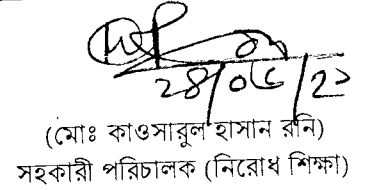 ২৪/০৫/২১
(মোঃ কাওসারুল হাসান রনি)
সহকারী পরিচালক (নিরোধ শিক্ষা)